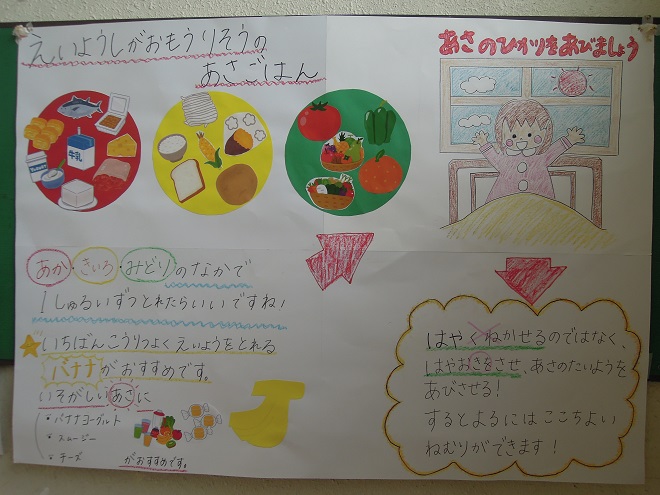 えいようしがおもうりそうの
あさごはん
牛乳
あか・きいろ・みどりのなかで
1しゅるいずつとれたらいいですね！
いちばんこうりつよくえいようをとれる
バナナがおすすめです。
いそがしいあさに
・バナナヨーグルト
・スムージー
・チーズ
がおすすめです。
あさのひかりをあびましょう
はやくねかせるのではなく、
はやおきをさせ、あさのたいようを
あびさせる！
するとよるにはここちよい
ねむりができます！